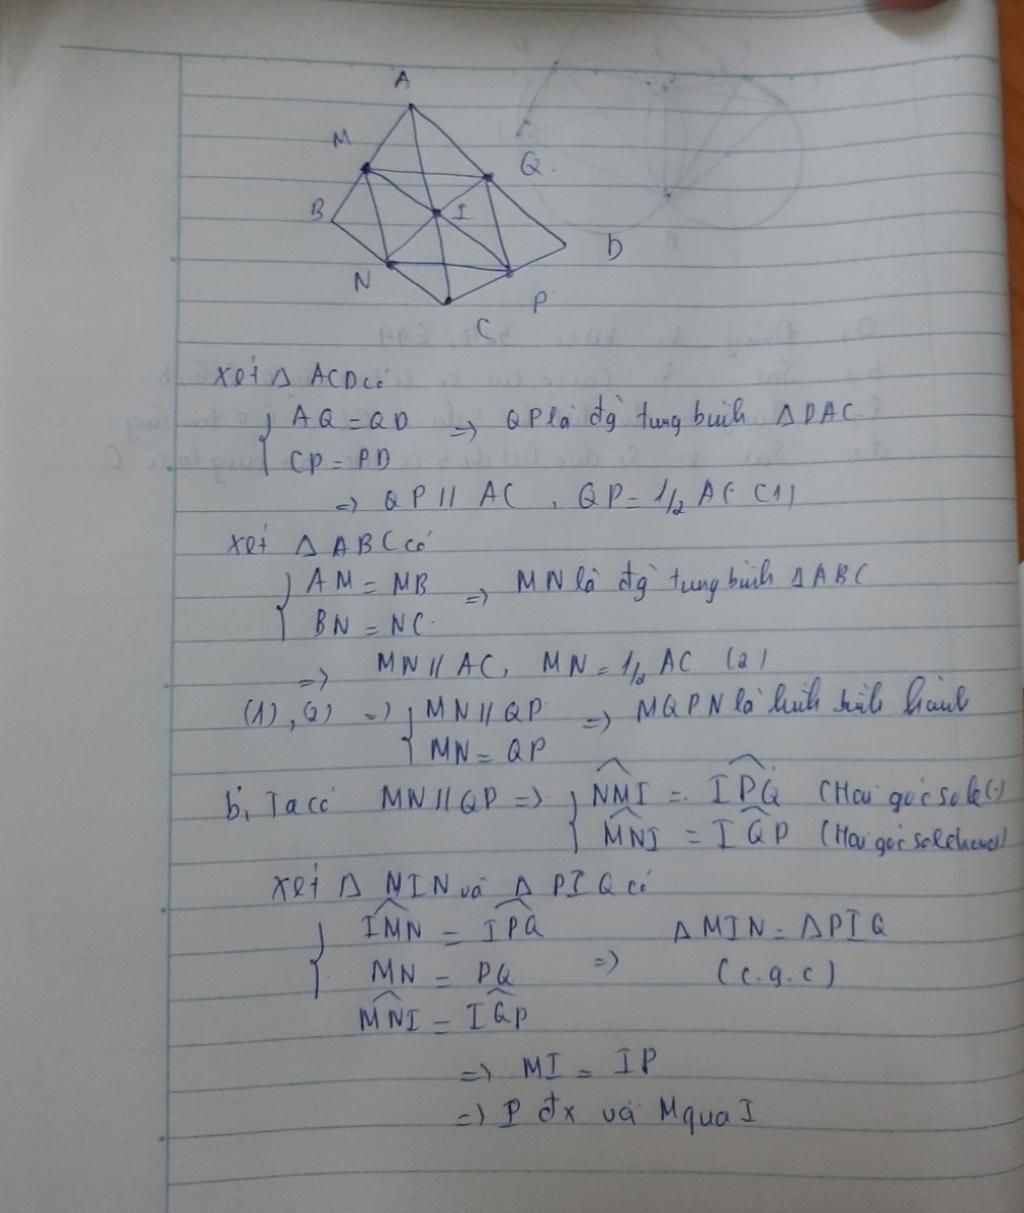 A
M
Q
B
I
D
N
P
C
Xét Δ ACD có
AQ = QD => QP là đg̀ tung bình Δ DAC.
CP = PD
=> QP // AC , QP = 1/2 AC (1)
Xét Δ ABC có
AM = MB => MN là đg̀ tung bình Δ ABC
BN = NC.
=> MN // AC, MN = 1/2 AC (2)
(1), (2) => MN // QP => MQPN là hình bình hành
MN = QP
b, Ta có MN // QP => NMI = IPQ (Hai góc sole
MNI = IQP (Hai góc sole
Xét Δ MIN và Δ PIQ có
IMN = IPQ Δ MIN = Δ PIQ
MN = PQ => (c.g.c)
MNI = IQP
=> MI = IP
=> P đx và M qua I